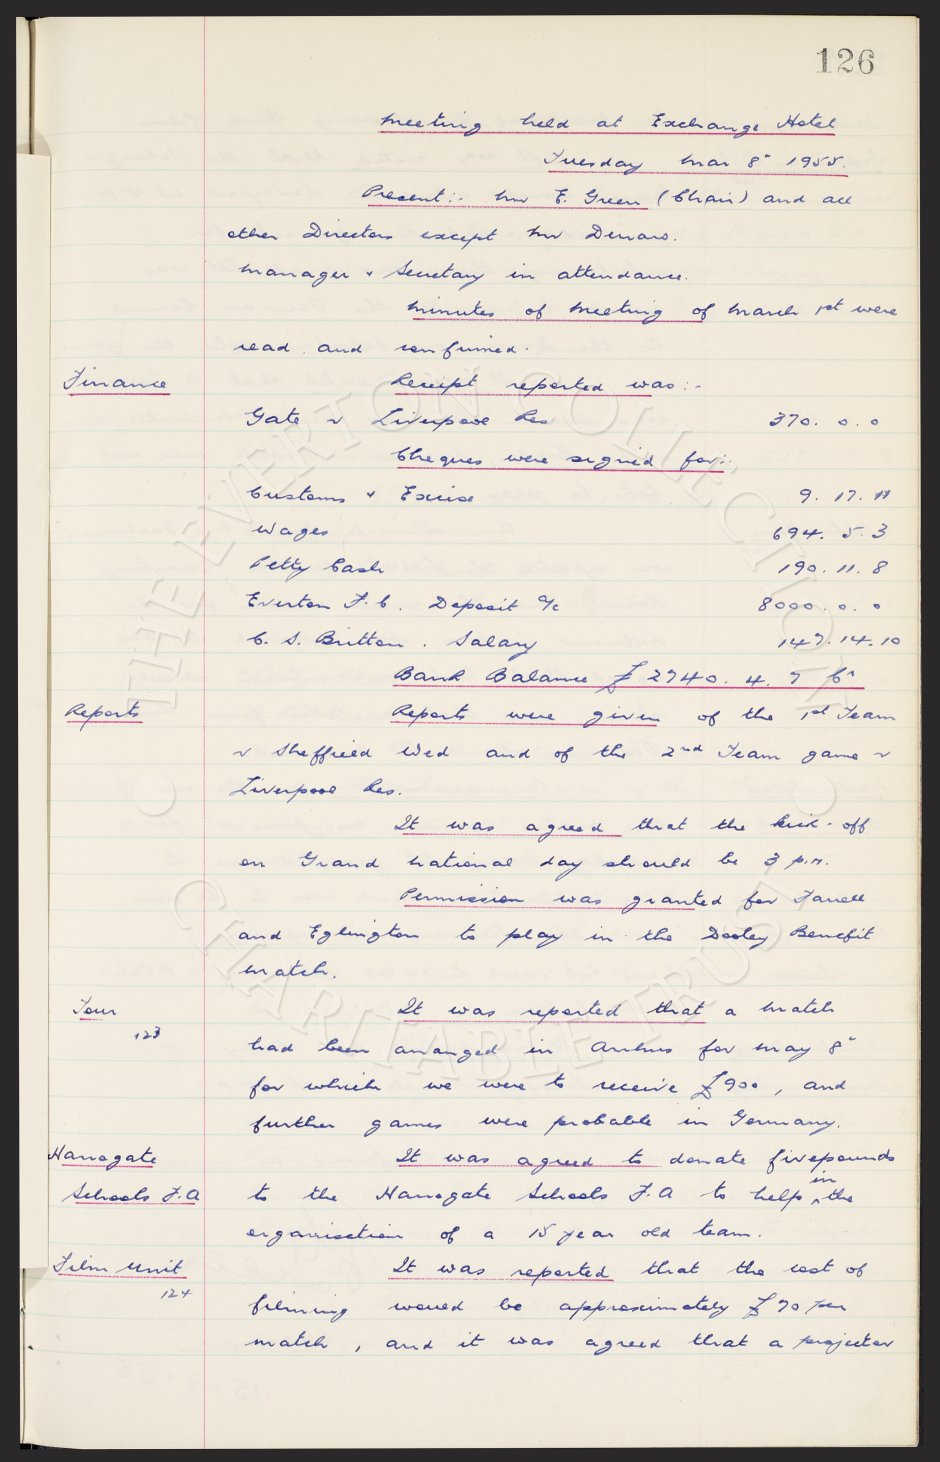 126
Meeting held at Exchange Hotel
Tuesday Mar 8" 1955.
Present:- Mr E. Green (Chair) and all
other Directors except Mr Denaro.
Manager & Secretary in attendance.
Minutes of Meeting of March 1st were
read and confirmed.
Finance Receipt reported was:-
Gate v Liverpool Res 370. 0. 0
Cheques were signed for:-
Customs & Excise 9. 17. 11
Wages 694. 5. 3
Petty Cash 190. 11. 8
Everton F.C. Deposit a/c 8000. 0. 0
C. S. Britton. Salary 147. 14. 10
Bank Balance £2740. 4. 7 Cr
Reports Reports were given of the 1st Team
v Sheffield Wed and of the 2nd Team game v
Liverpool Res.
It was agreed that the kick-off
on Grand National day should be 3 p.m.
Permission was granted for Farrell
and Eglington to play in the Dooley Benefit
match.
Tour It was reported that a match
123 had been arranged in Arhus for May 8"
for which we were to receive £900, and
further games were probable in Germany.
Harrogate It was agreed to donate five pounds
Schools F.A to the Harrogate Schools F.A to help in the
organisation of a 15 year old team.
Film Unit It was reported that the cost of
124 filming would be approximately £70 per
match, and it was agreed that a projector
© THE EVERTON COLLECTION
CHARITABLE TRUST ©